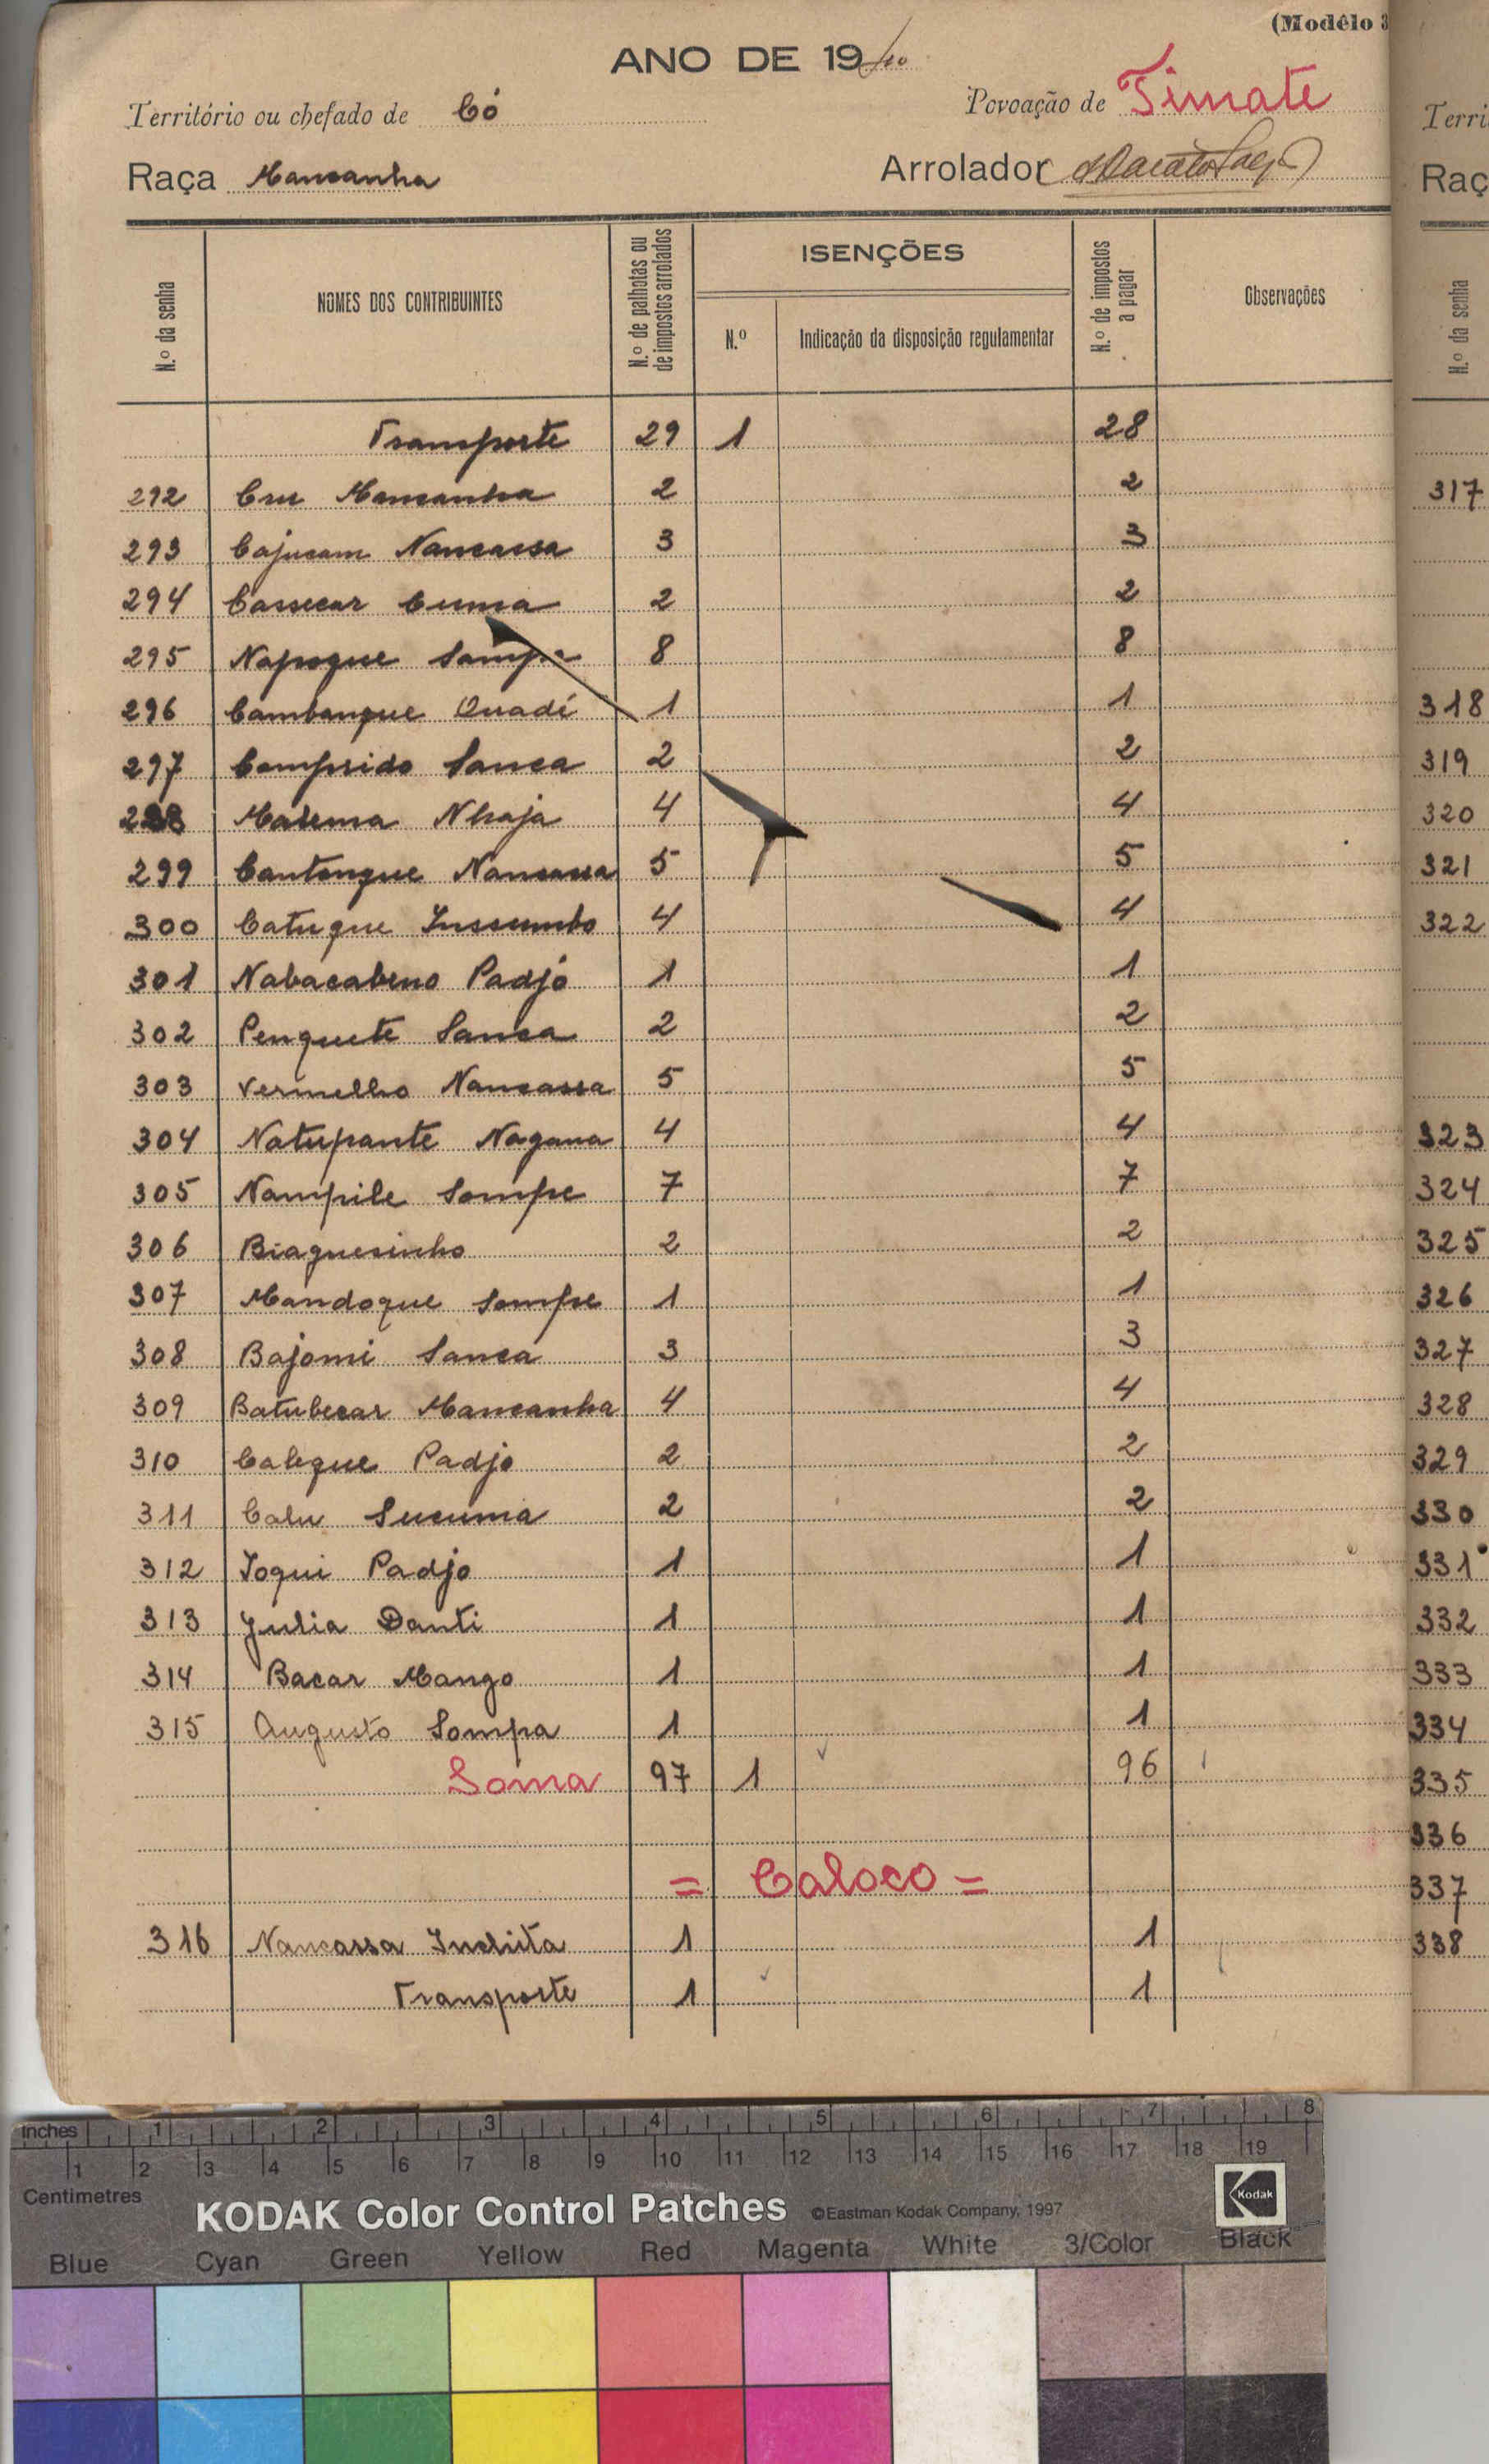 (Modêlo 3
ANO DE 1940
Território ou chefado de Có
Povoação de Timate
Raça Mancanha
Arrolador
N.º da senha
NOMES DOS CONTRIBUINTES
N.º de palhotas ou de impostos arrolados
ISENÇÕES
N.º
Indicação da disposição regulamentar
N.º de impostos a pagar
Observações
Transporte 29 1 28
292 Cru Mancanha 2 2
293 Cajucam Nancassa 3 3
294 Cassecar Cuma 2 2
295 Napoque Sampa 8 8
296 Cambanque Quadé 1 1
297 Comprido Sanca 2 2
298 Malema Nhaja 4 4
299 Cantongue Nancassa 5 5
300 Catuque Inssumbo 4 4
301 Nabacabeno Padjó 1 1
302 Penquete Sanca 2 2
303 Vermelho Nancassa 5 5
304 Natupante Nagana 4 4
305 Nampile Sompe 7 7
306 Biaguesinho 2 2
307 Mandoque Sompe 1 1
308 Bajomi Sanca 3 3
309 Batubecar Mancanha 4 4
310 Caleque Padjo 2 2
311 Calu Sucuma 2 2
312 Ioqui Padjo 1 1
313 Julia Danti 1 1
314 Bacar Mango 1 1
315 Augusto Sompa 1 1
Soma 97 1 96
= Caloco =
316 Nancassa Inchita 1 1
Transporte 1 1
Terri
Raç
N.º da senha
317
318
319
320
321
322
323
324
325
326
327
328
329
330
331
332
333
334
335
336
337
338
Inches 1 2 3 4 5 6 7 8
1 2 3 4 5 6 7 8 9 10 11 12 13 14 15 16 17 18 19
Centimetres
KODAK Color Control Patches ©Eastman Kodak Company, 1997 Kodak
Blue Cyan Green Yellow Red Magenta White 3/Color Black